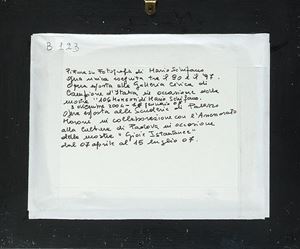 B 123
Pittura su Fotografia di Mario Schifano
Opera unica eseguita tra il 90 e il '97.
Opera esposta alla Galleria Civica di
Campione d'Italia in occasione della
mostra "106 Mario Schifano.
3 dicembre 2006 - 07
Opera esposta alle Scuderie di Palazzo
Moroni in collaborazione con l'Assessorato
alla Cultura di Padova in occasione
della mostra "Gioie Istantanee"
dal 07 aprile al 15 luglio 07.